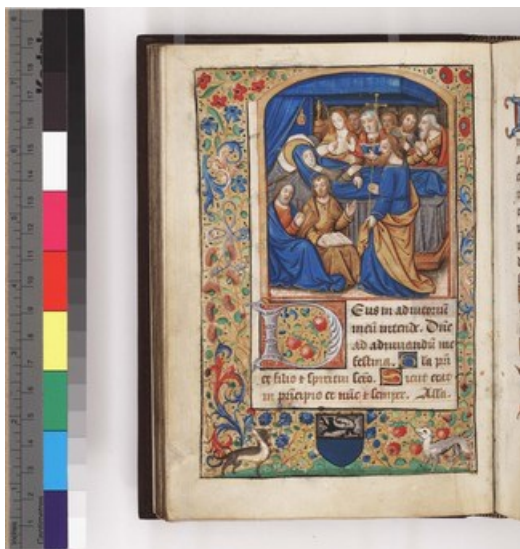 Deus in adiutoriũ
meũ intende. Dñe
ad adiuuandũ me
festina. Gla pri
et filio & spiritui scõ. Sicut erat
in principio et nũc & semper. Alla.